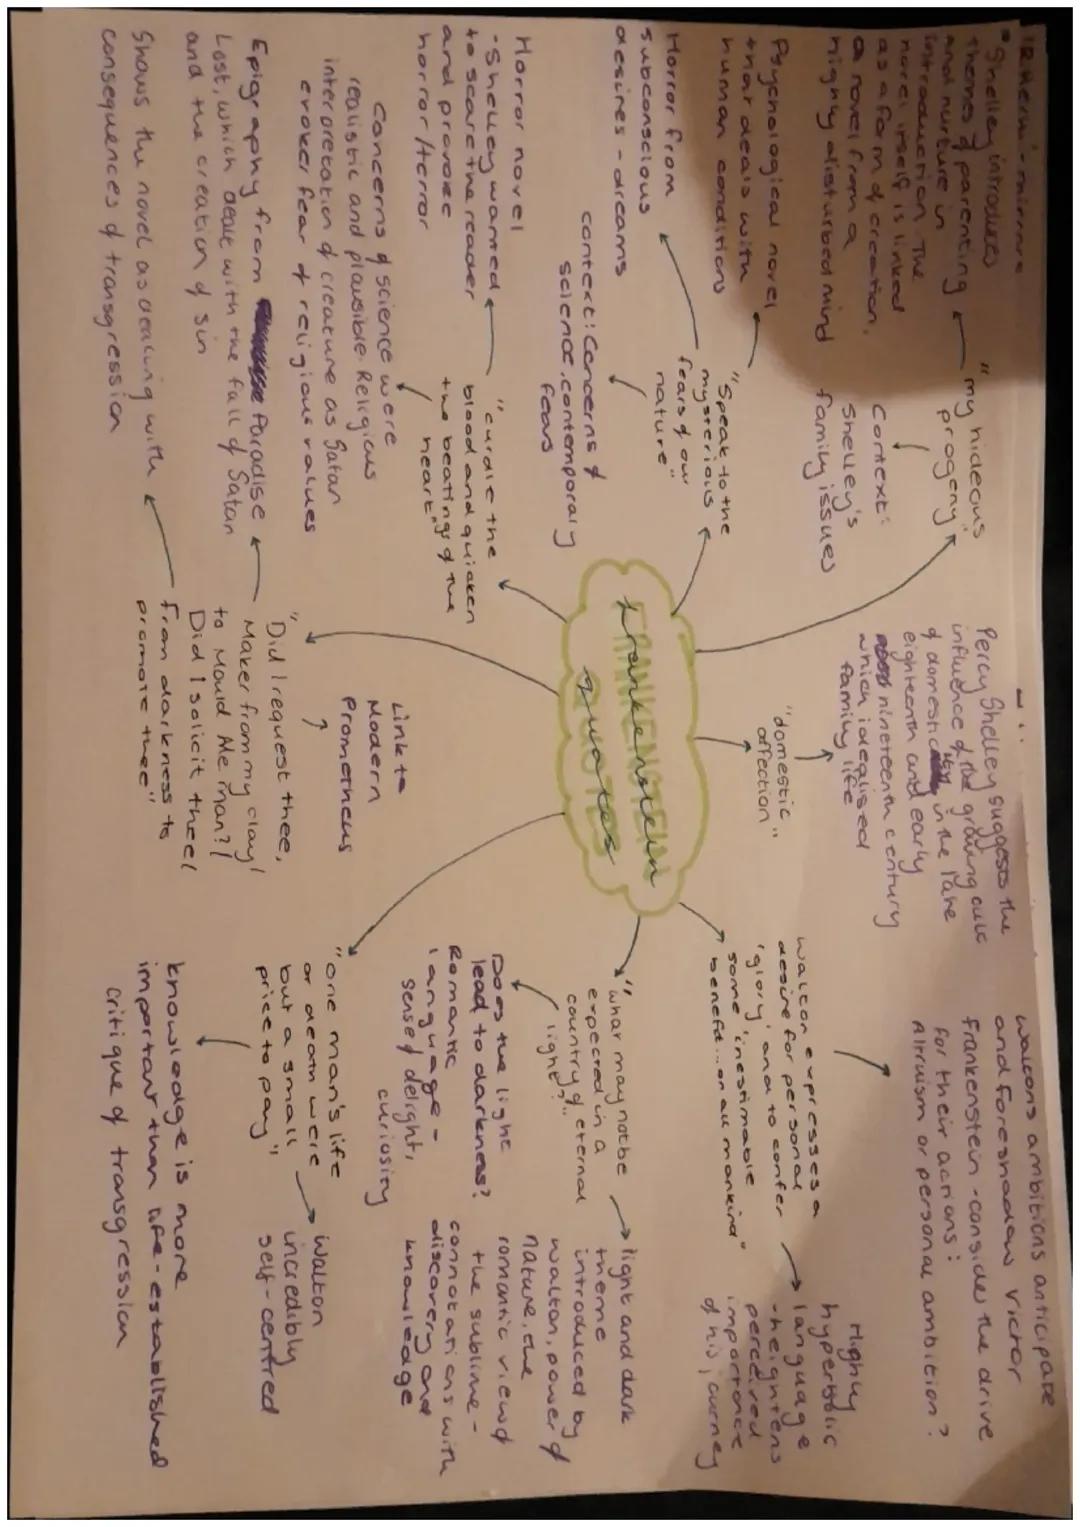 Shelley introduces
themes of parenting
and nurture in
introduction. The
novel itself is linked
as a form of creation,
a novel from a
highly disturbed mind
"my hideous
progeny"
Context:
Shelley's
family issues
Psychological novel
that deals with
human conditions
Horror from
subconscious
desires - dreams
"Speak to the
mysterious
fears of our
nature"
context: Concerns of
science, contemporary
fears
Horror novel
- Shelley wanted
to scare the reader
and provoke
horror/terror
"curdle the
blood and quicken
the beatings of the
heart"
Concerns of science were
realistic and plausible. Religious
interpretation of creature as Satan
evokes fear of religious values
Epigraphy from Paradise
Lost, which dealt with the fall of Satan
and the creation of sin
Shows the novel as dealing with
consequences of transgression
"Did I request thee,
Maker from my clay/
to Mould Me Man?/
Did I solicit thee/
from darkness to
promote thee"
Link to
Modern
Prometheus
FRANKENSTEIN
QUOTES
Frankenstein
quotes
Percy Shelley suggests the
influence of the growing cult
of domestic in the late
eighteenth and early
nineteenth century
which idealised
family life
"domestic
affection"
Waltons ambitions anticipate
and foreshadow Victor
Frankenstein - consider the drive
for their actions:
Altruism or personal ambition?
Walton expresses a
desire for personal
'glory' and to confer
some 'inestimable
benefit... on all mankind"
Highly
hyperbolic
language
- heightens
perceived
importance
of his journey
"what may not be
expected in a
country of eternal
light?"
light and dark
theme
introduced by
Walton, power of
nature, the
romantic view of
the sublime -
connotations with
discovery and
knowledge
Does the light
lead to darkness?
Romantic
language -
sense of delight,
curiosity
"one man's life
or death were
but a small
price to pay"
Walton
incredibly
self-centred
knowledge is more
important than life - established
critique of transgression